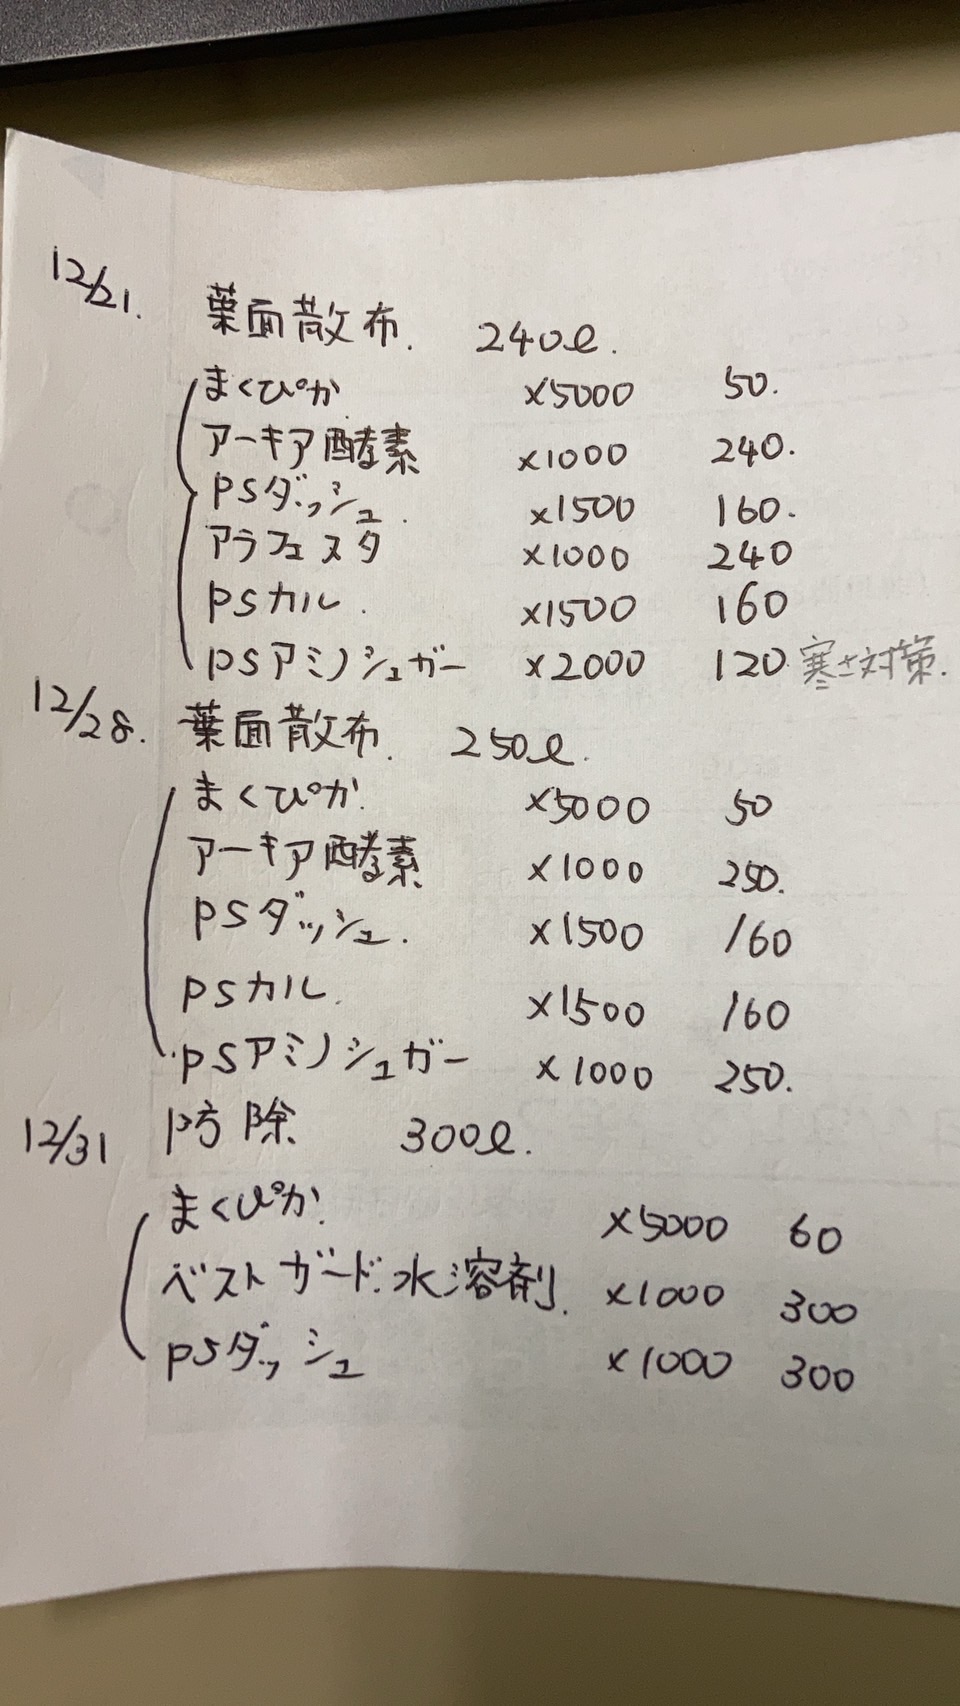 12/21. 葉面散布. 240ℓ.
まくぴか ×5000 50.
アーキア酵素 ×1000 240.
PSダッシュ. ×1500 160.
アラフェスタ ×1000 240
PSカル. ×1500 160
PSアミノシュガー ×2000 120 寒さ対策.
12/28. 葉面散布. 250ℓ.
まくぴか. ×5000 50
アーキア酵素 ×1000 250.
PSダッシュ. ×1500 160
PSカル. ×1500 160
PSアミノシュガー ×1000 250.
12/31 防除 300ℓ.
まくぴか. ×5000 60
ベストガード水溶剤. ×1000 300
PSダッシュ ×1000 300